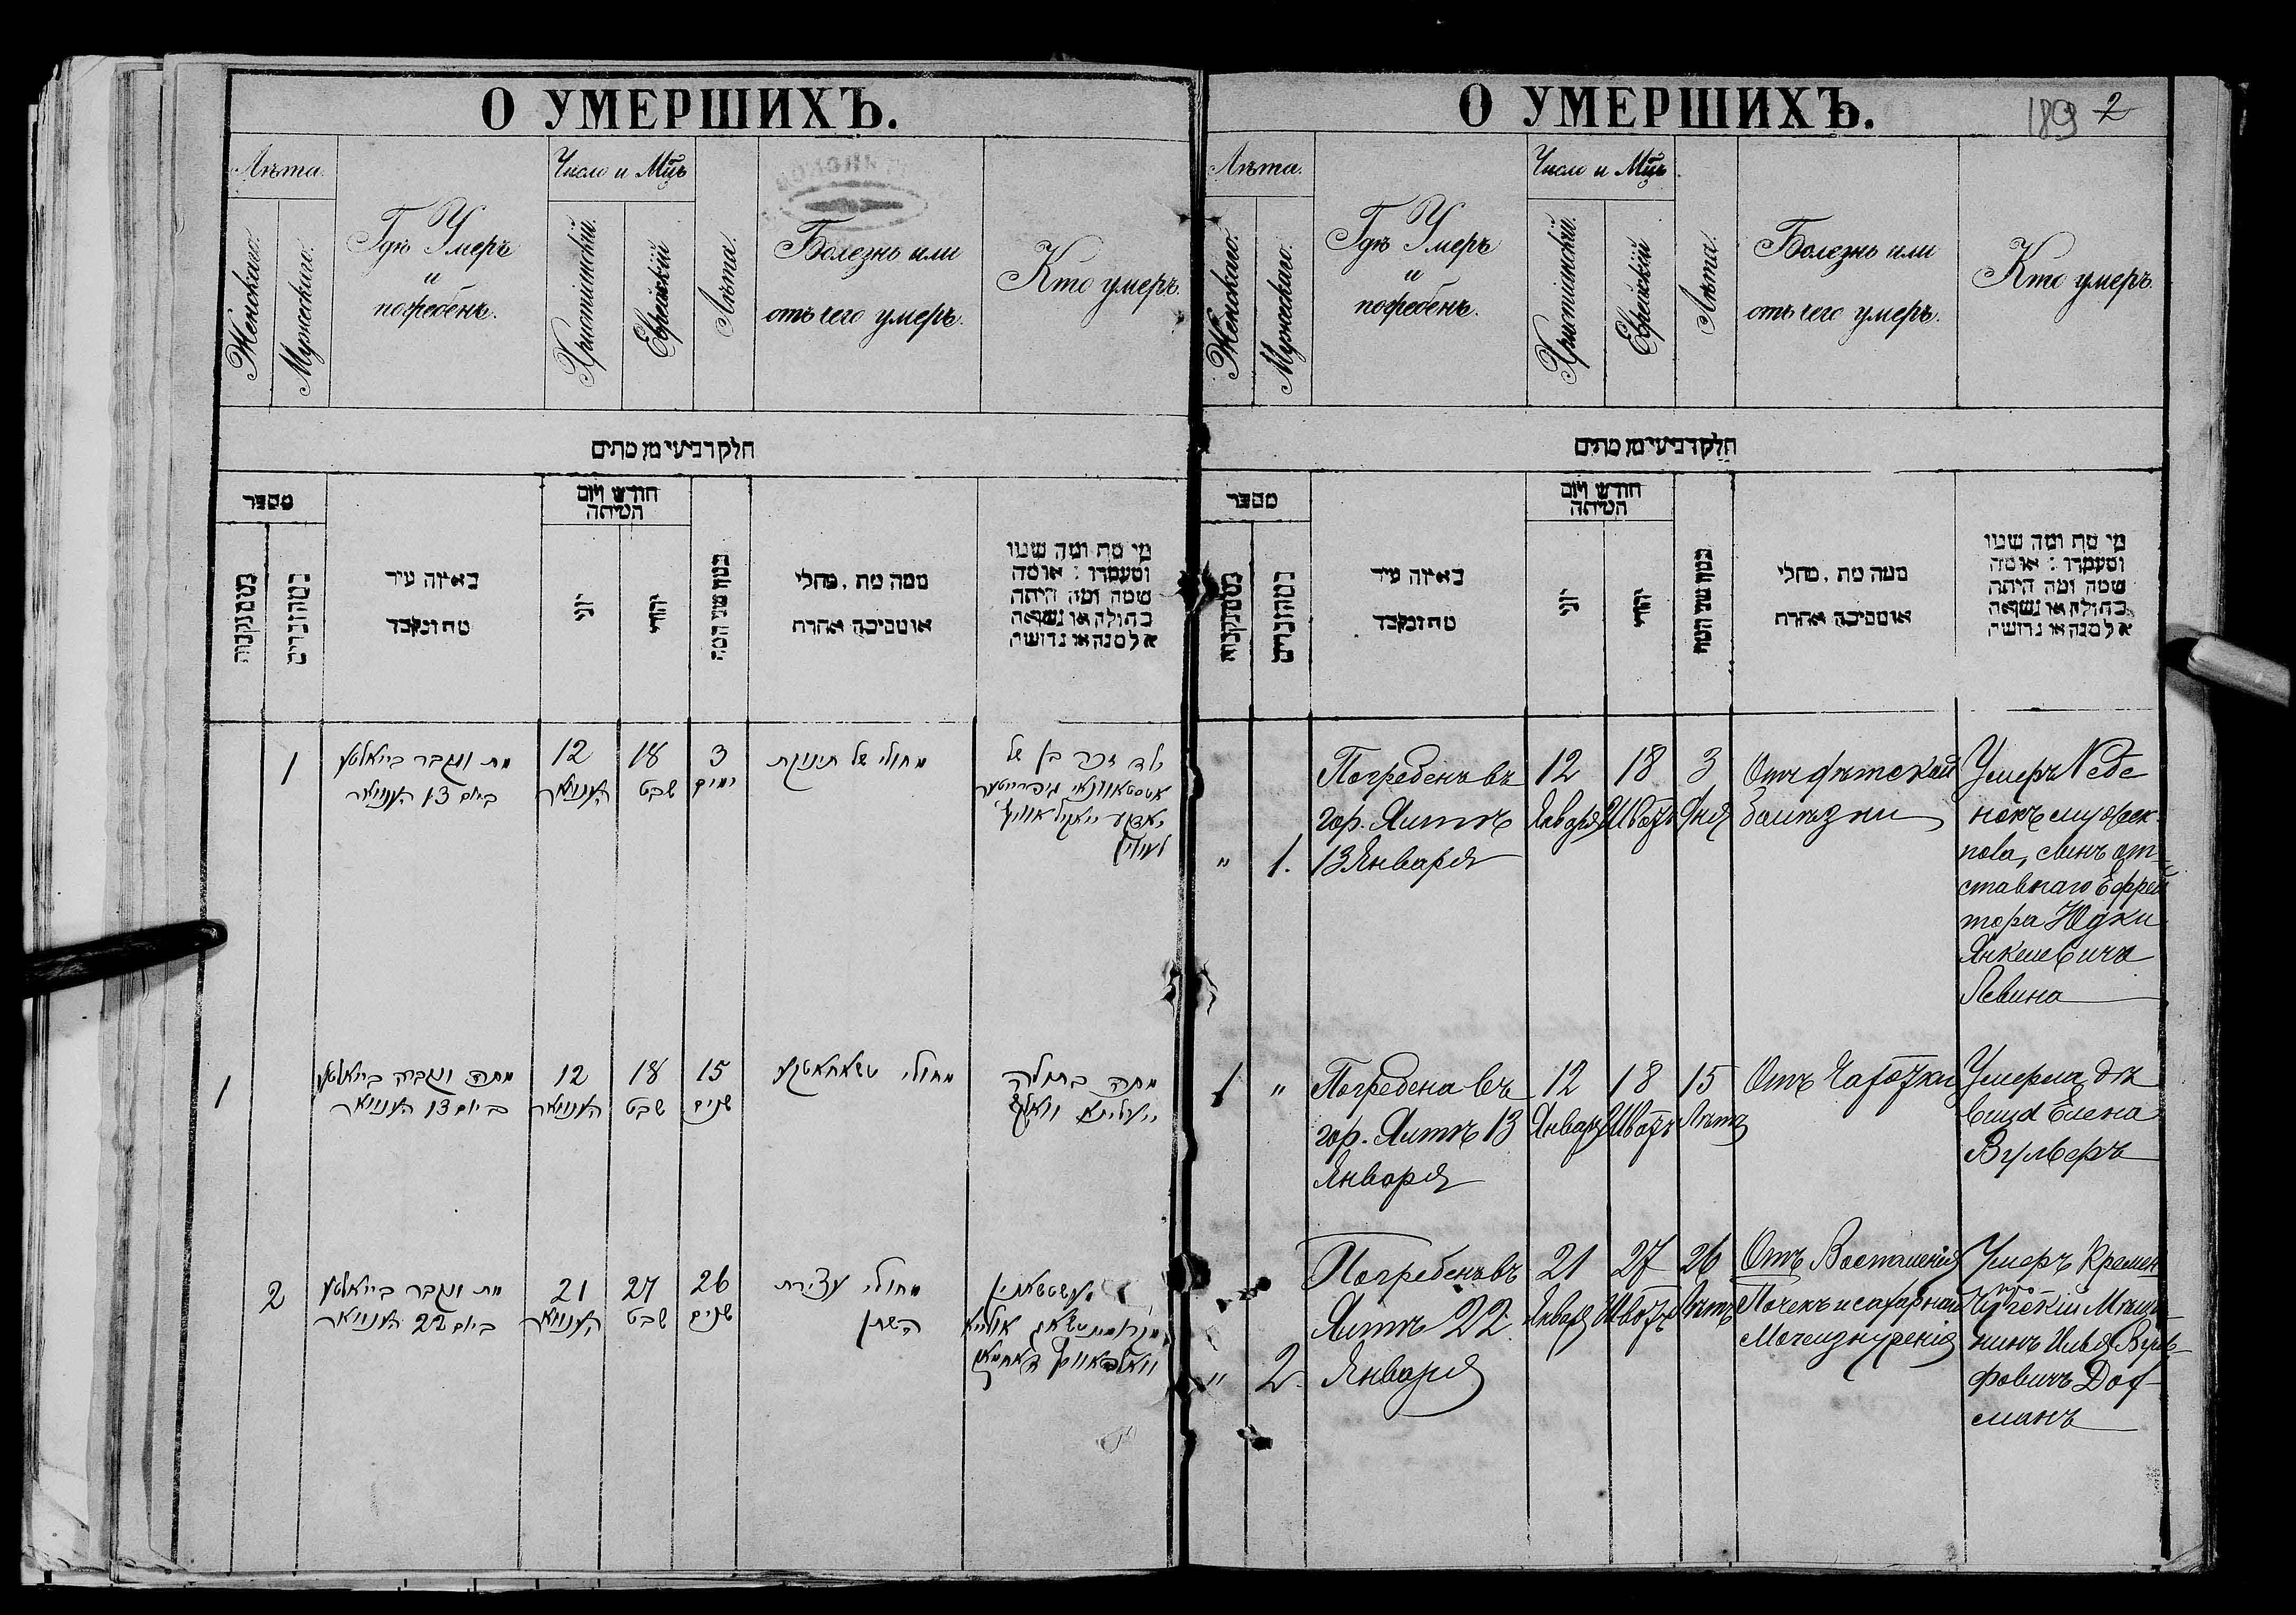 О УМЕРШИХЪ.
Лѣта.
Женскаго.
Мужескаго.
Гдѣ Умеръ
и
погребенъ.
Число и Мцъ
Христіянскій.
Еврейскій
Лѣта.
Болезнь или
отъ чего умеръ.
Кто умеръ.
חלק רביעי מן מתים
מספר
באיזה עיר
מת ונקבר
חודש ויום
המיתה
יוני
יהודי
ממה מת, מחלי
או מסיבה אחרת
מי מת ומה שמו
ומעמדו : או מה
שמה ומה היתה
בתולה או נשואה
אלמנה או גרושה
1
מת ונקבר בייאלטע
ביום 13 יענוואר
12
יענוואר
18
שבט
3
ימים
מחולי של תינוקת
ילד זכר בן של
1
מתה ונקברה בייאלטע
ביום 13 יענוואר
12
יענוואר
18
שבט
15
שנים
מחולי
מתה בתולה
2
מת ונקבר בייאלטע
ביום 22 יענוואר
21
יענוואר
27
שבט
26
שנים
מחולי עצירת
השתן
О УМЕРШИХЪ.
189 2
Лѣта.
Женскаго.
Мужескаго.
Гдѣ Умеръ
и
погребенъ.
Число и Мцъ
Христіянскій.
Еврейскій
Лѣта.
Болезнь или
отъ чего умеръ.
Кто умеръ.
חלק רביעי מן מתים
מספר
באיזה עיר
מת ונקבר
חודש ויום
המיתה
יוני
יהודי
ממה מת, מחלי
או מסיבה אחרת
מי מת ומה שמו
ומעמדו : או מה
שמה ומה היתה
בתולה או נשואה
אלמנה או גרושה
" 1.
Погребенъ въ
гор. Ялтѣ
13 Января
12
Января
18
Шватъ
3
Дня
Отъ дѣтской
болѣзни
Умеръ
сынъ от-
ставнаго Ефрей
тора Юдки
Янкелевича
Левина
1 "
Погребена въ
гор. Ялтѣ 13
Января
12
Января
18
Шватъ
15
Лѣтъ
Отъ Чахотки
Умерла дѣ
вица Елена
Вульферъ
" 2.
Погребенъ въ
Ялтѣ 22
Января
21
Января
27
Шватъ
26
Лѣтъ
Отъ Воспаленія
Почекъ и сахарнаго
Мочеизнуренія
Умеръ Кремен
чугскій Мѣща
нинъ Илья Вуль-
фовичъ Доф-
манъ